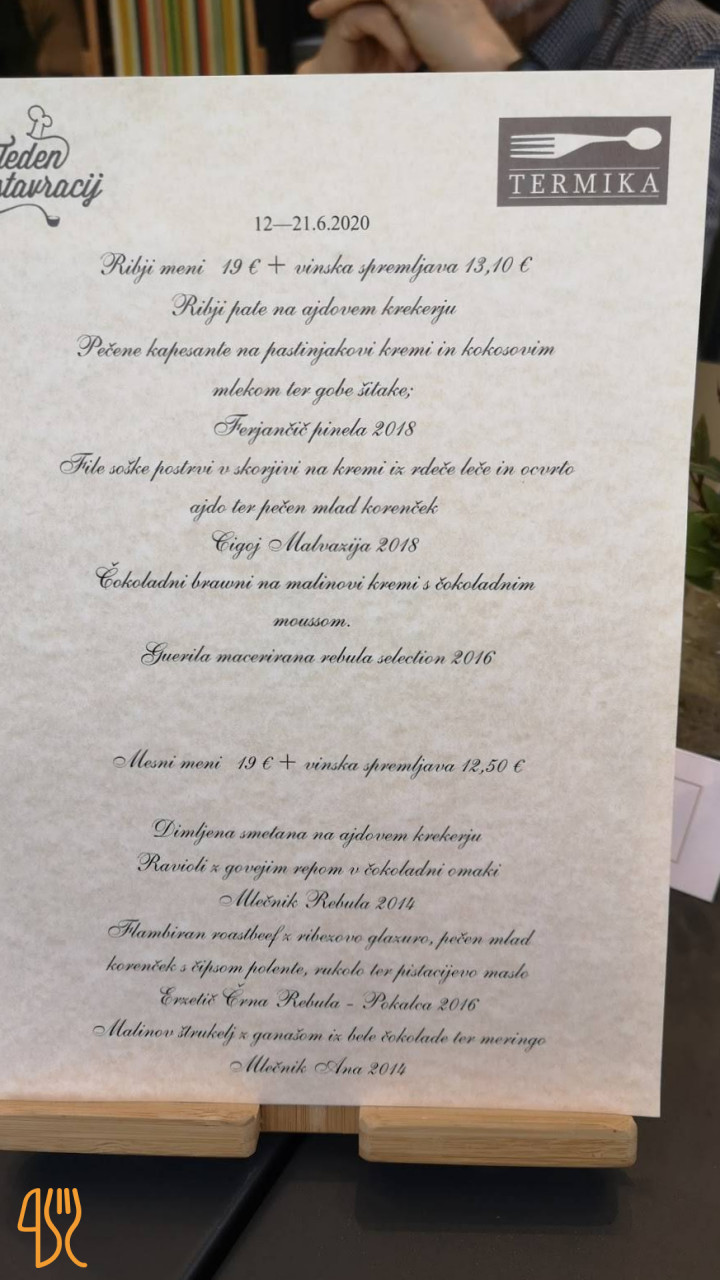 Teden
stavracij
TERMIKA
12—21.6.2020
Ribji meni 19 € + vinska spremljava 13,10 €
Ribji pate na ajdovem krekerju
Pečene kapesante na pastinjakovi kremi in kokosovim
mlekom ter gobe šitake;
Ferjančič pinela 2018
File soške postrvi v skorjivi na kremi iz rdeče leče in ocvrto
ajdo ter pečen mlad korenček
Cigoj Malvazija 2018
Čokoladni brawni na malinovi kremi s čokoladnim
moussom.
Guerila macerirana rebula selection 2016
Mesni meni 19 € + vinska spremljava 12,50 €
Dimljena smetana na ajdovem krekerju
Ravioli z govejim repom v čokoladni omaki
Mlečnik Rebula 2014
Flambiran roastbeef z ribezovo glazuro, pečen mlad
korenček s čipsom polente, rukolo ter pistacijevo maslo
Erzetič Črna Rebula - Pokalca 2016
Malinov štrukelj z ganašom iz bele čokolade ter meringo
Mlečnik Ana 2014